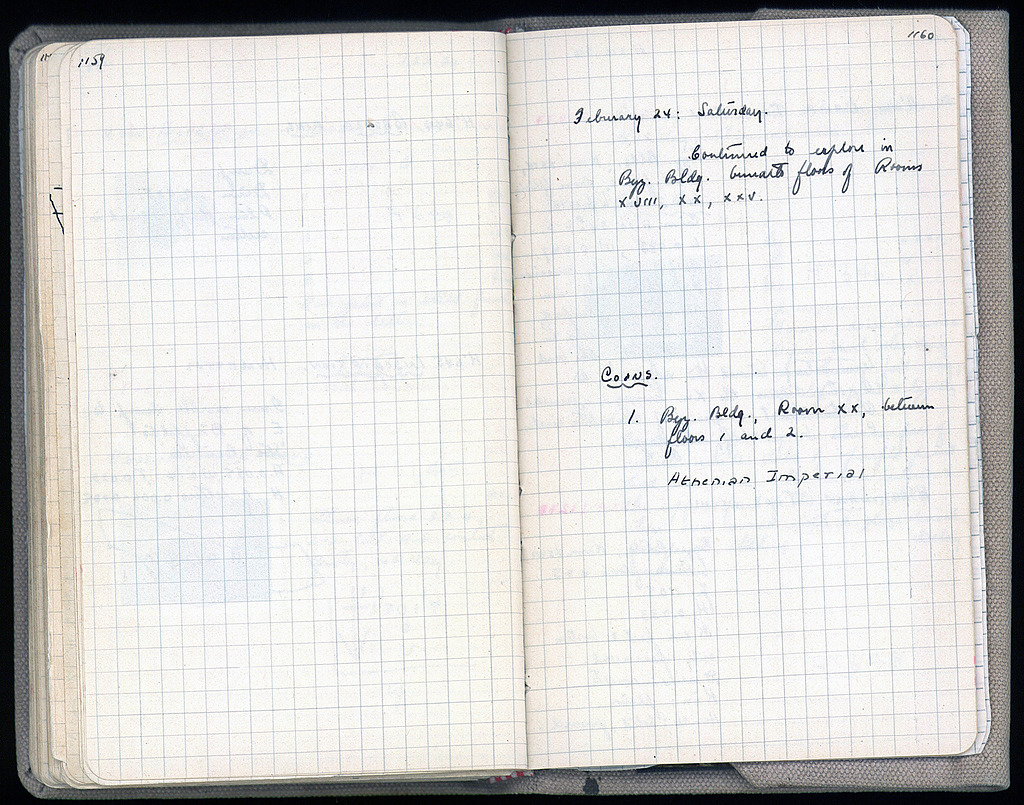 1159
1160
February 24: Saturday.
Continued to explore in
Byz. Bldg. beneath floors of Rooms
XVIII, XX, XXV.
Coins.
1. Byz. Bldg., Room XX, between
floors 1 and 2.
Athenian Imperial